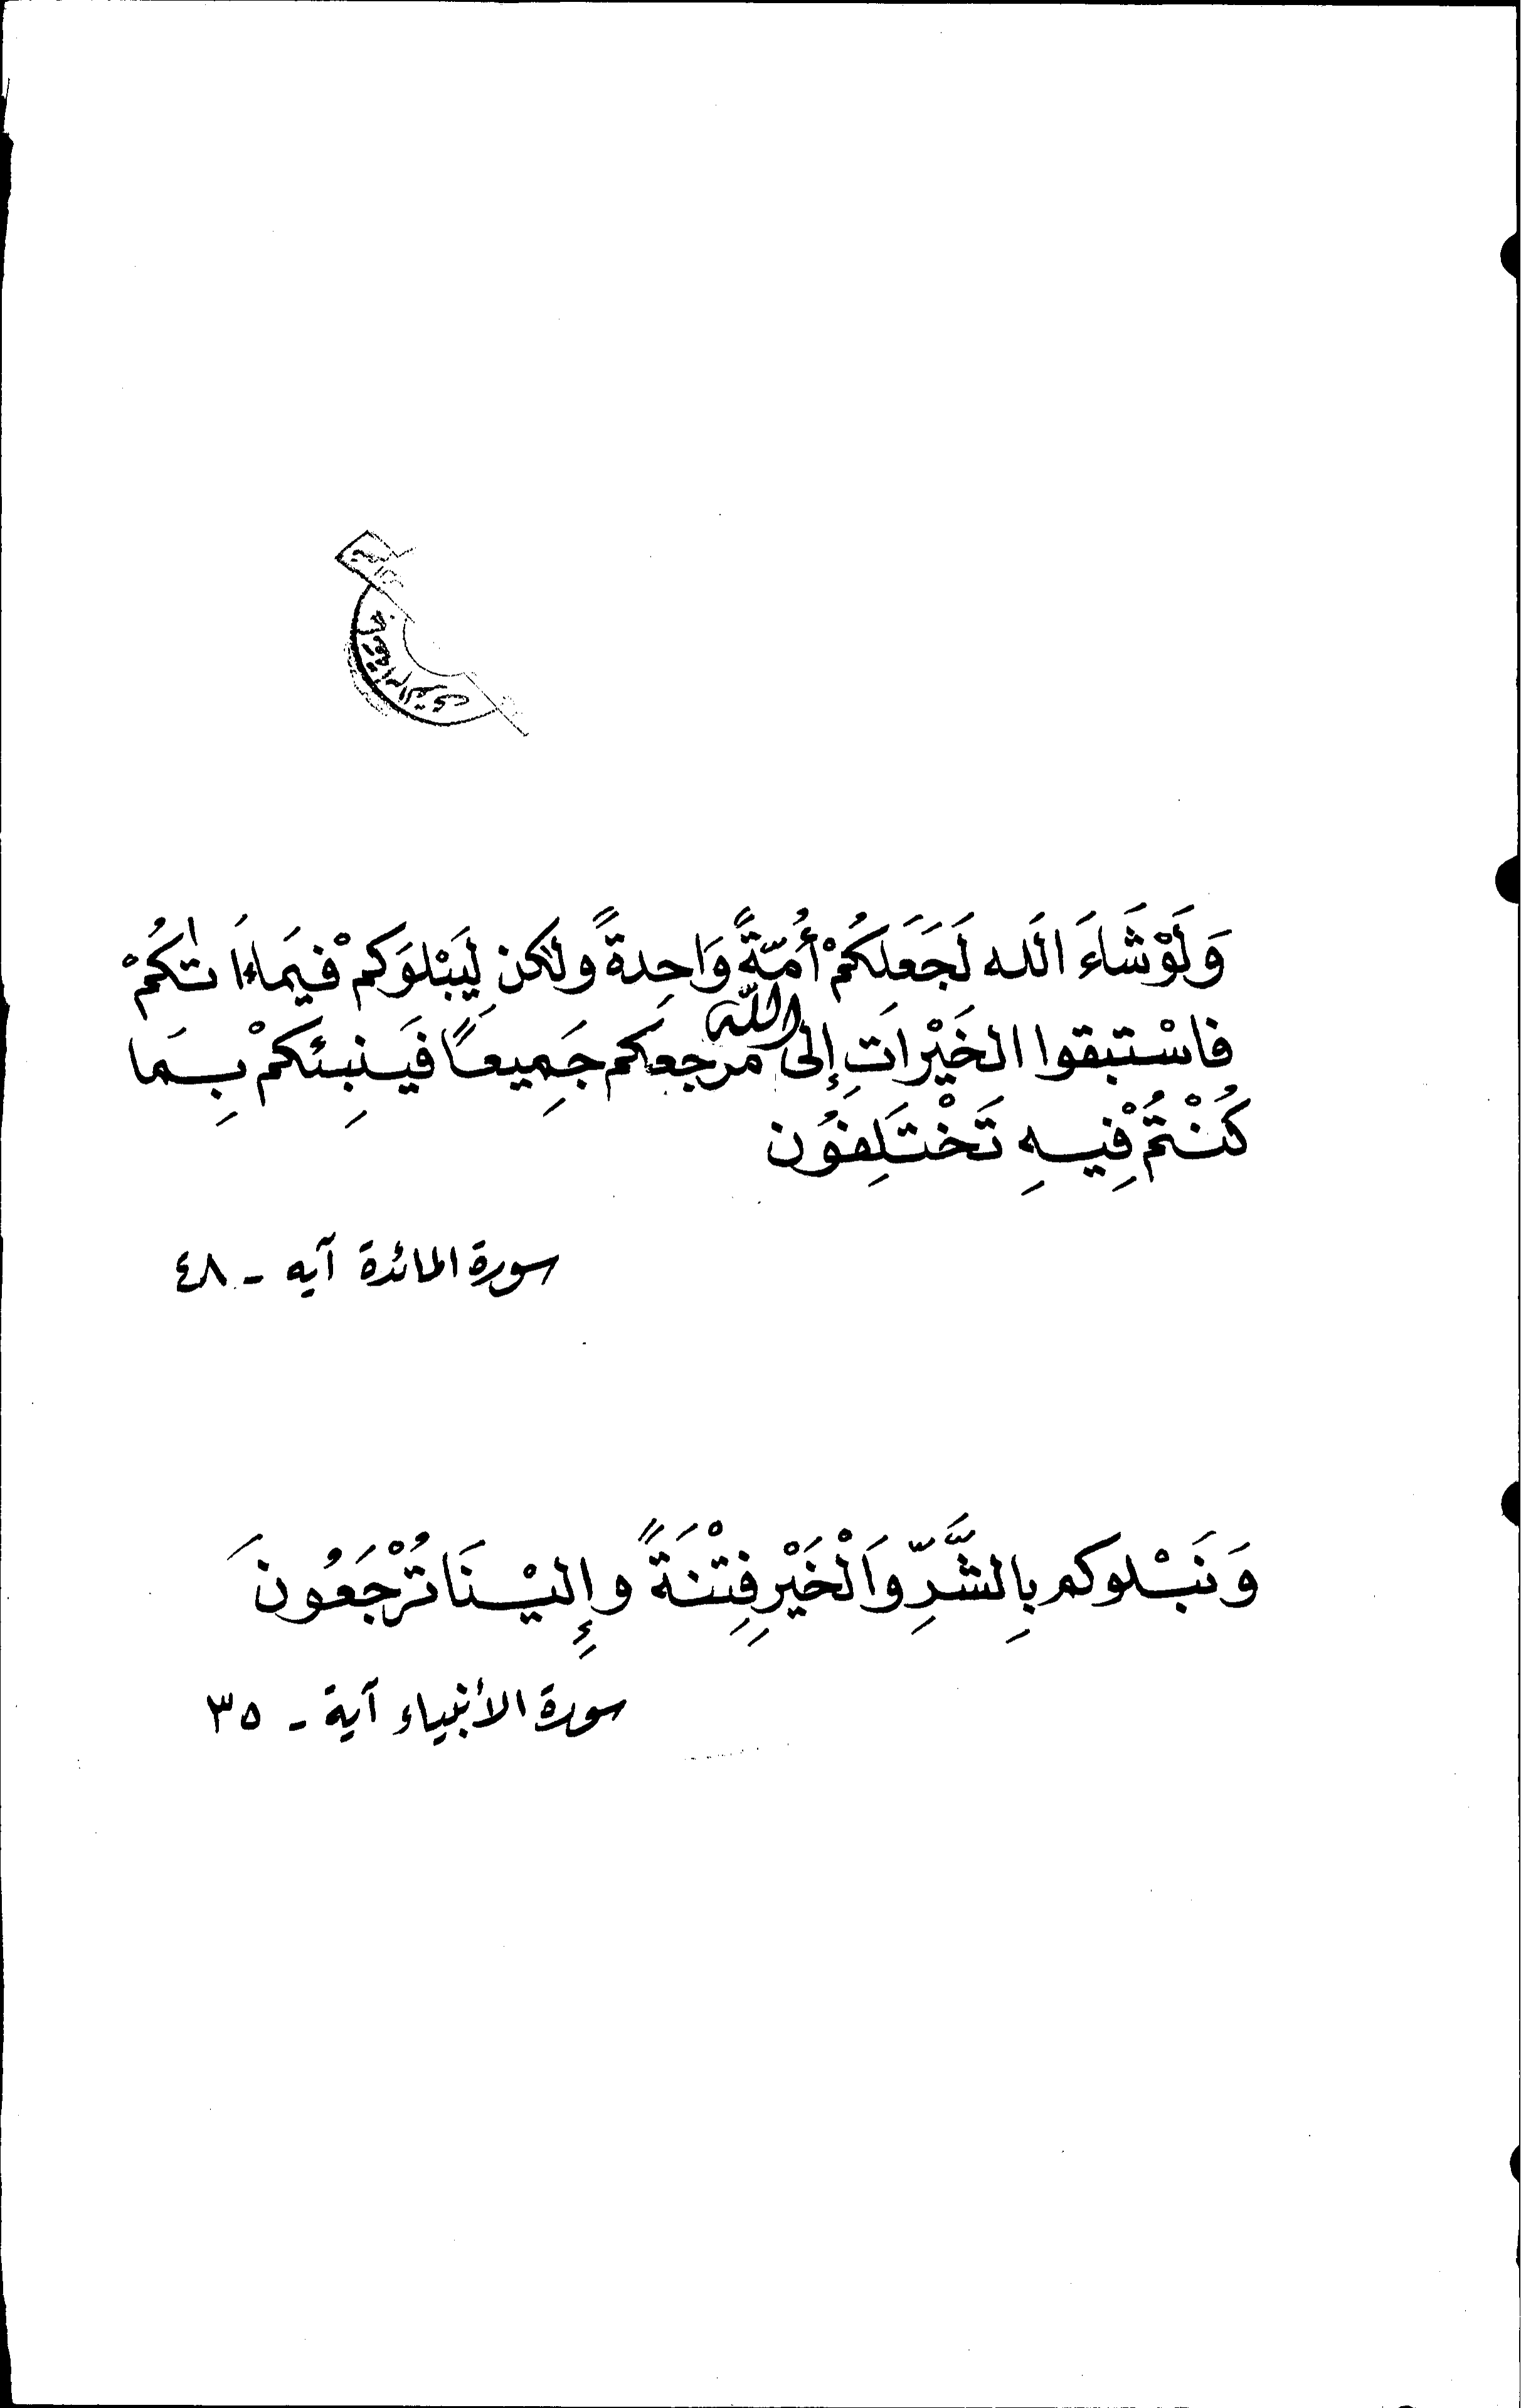 وَلَوْ شَاءَ الَله لَجَعَلَكُمْ أُمّةً وَاحِدةً ولٰكن لِيَبْلوَكمْ فيمَا ءَاتٰكُمْ
فاسْتبقوا الخَيْراتِ إلى الله مرجعكم جَمِيعـًا فَيـنبِئكمْ بِـمَا
كُنْتمُ فِيهِ تَخْتَلِفوُن
سورة المائدة آيه - ٤٨
وَنَبْلوكم بِالشَّرِّ وَالْخَيْرِ فِتْنَةً وإِليْنَا تُرْجَعُونَ
سورة الأنبياء آية - ٣٥